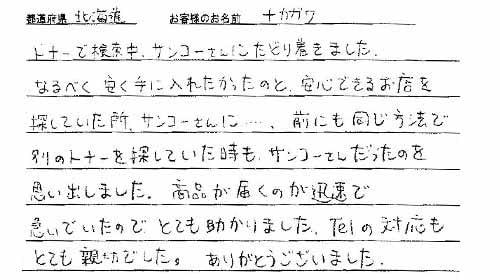 都道府県 北海道 お客様のお名前 ナカガワ
トナーで検索中、サンコーさんにたどり着きました。
なるべく安く手に入れたかったのと、安心できるお店を
探していた所、サンコーさんに……、前にも同じ方法で
別のトナーを探していた時も、サンコーさんだったのを
思い出しました。商品が届くのが迅速で
急いでいたので とても助かりました。Telの対応も
とても親切でした。ありがとうございました。